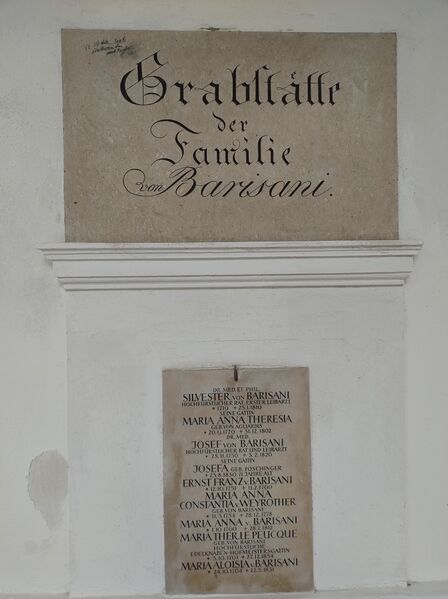 Grabstätte
der
Familie
von Barisani.
DR. MED. ET. PHIL.
SILVESTER VON BARISANI
HOCHFÜRSTLICHER RAT, ERSTER LEIBARZT
* 1719 + 25.1.1810
SEINE GATTIN
MARIA ANNA THERESIA
GEB. VON AGLIARDIS
+ 31.12.1802
DR. MED.
JOSEF VON BARISANI
HOCHFÜRSTLICHER RAT UND LEIBARZT
SEINE GATTIN
JOSEFA GEB. PÖSCHINGER
ERNST FRANZ v. BARISANI
* 12.10.1751 + 11.2.1800
MARIA ANNA
CONSTANTIA v. WEYROTHER
GEB. VON BARISANI
* 11.3.1754 + 28.12.1778
MARIA ANNA v. BARISANI
MAR. THER. LE PEUCQUE
GEB. VON BARISANI
HOCHFÜRSTLICHE
EDELKNABEN-HOFMEISTERSGATTIN
MARIA ALOISIA v. BARISANI